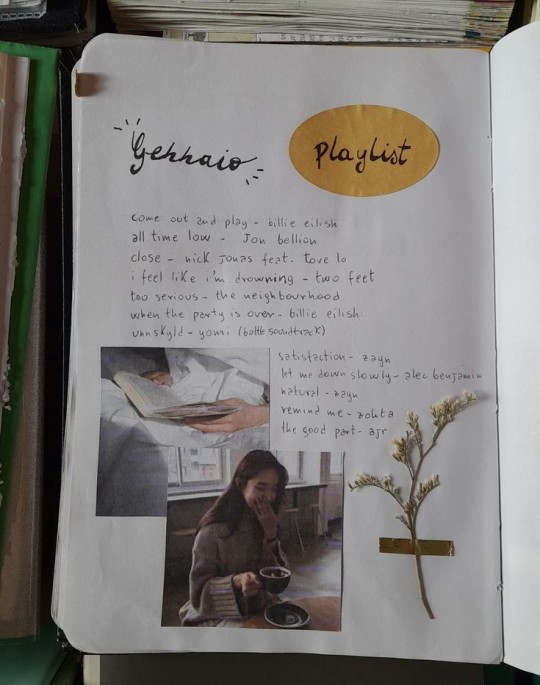 Gennaio
Playlist
come out and play - billie eilish
all time low - Jon bellion
close - nick Jonas feat. tove lo
i feel like i'm drowning - two feet
too serious - the neighbourhood
when the party is over - billie eilish
unnskyld - yomi (battle soundtrack)
satisfaction - zayn
let me down slowly - alec benjamin
natural - zayn
remind me -
the good part - ajr